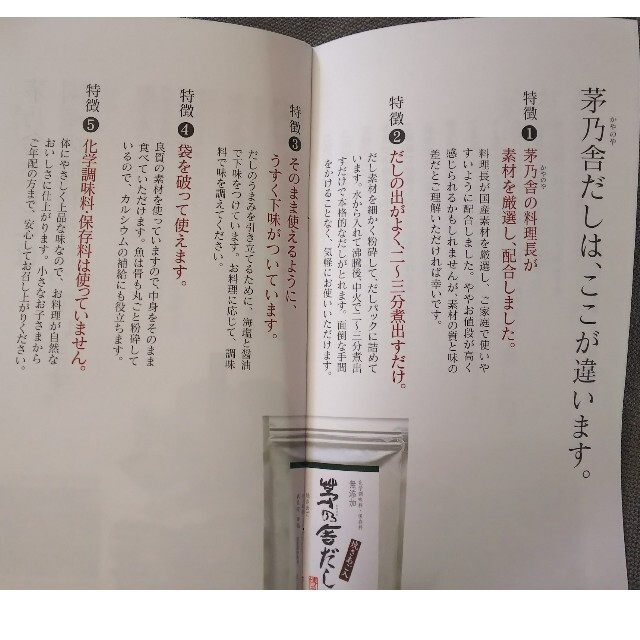 茅乃舎だしは、ここが違います。
かやのや
特徴❶
茅乃舎の料理長が
かやのや
素材を厳選し、配合しました。
料理長が国産素材を厳選し、ご家庭で使いや
すいように配合しました。ややお値段が高く
感じられるかもしれませんが、素材の質と味の
差だとご理解いただければ幸いです。
特徴❷
だしの出がよく、二〜三分煮出すだけ。
だし素材を細かく粉砕して、だしパックに詰めて
います。水から入れて沸騰後、中火で二〜三分煮出
すだけで本格的なだしがとれます。面倒な手間
をかけることなく、気軽にお使いいただけます。
特徴❸
そのまま使えるように、
うすく下味がついています。
だしのうまみを引き立てるために、海塩と醤油
で下味をつけています。お料理に応じて、調味
料で味を調えてください。
特徴❹
袋を破って使えます。
良質の素材を使っていますので、中身をそのまま
食べていただけます。魚は骨も丸ごと粉砕して
いるので、カルシウムの補給にも役立ちます。
特徴❺
化学調味料・保存料は使っていません。
体にやさしく上品な味なので、お料理が自然な
おいしさに仕上がります。小さなお子さまから
ご年配の方まで、安心してお召し上がりください。
化学調味料・保存料
無添加
焼きあご入
茅乃舎だし